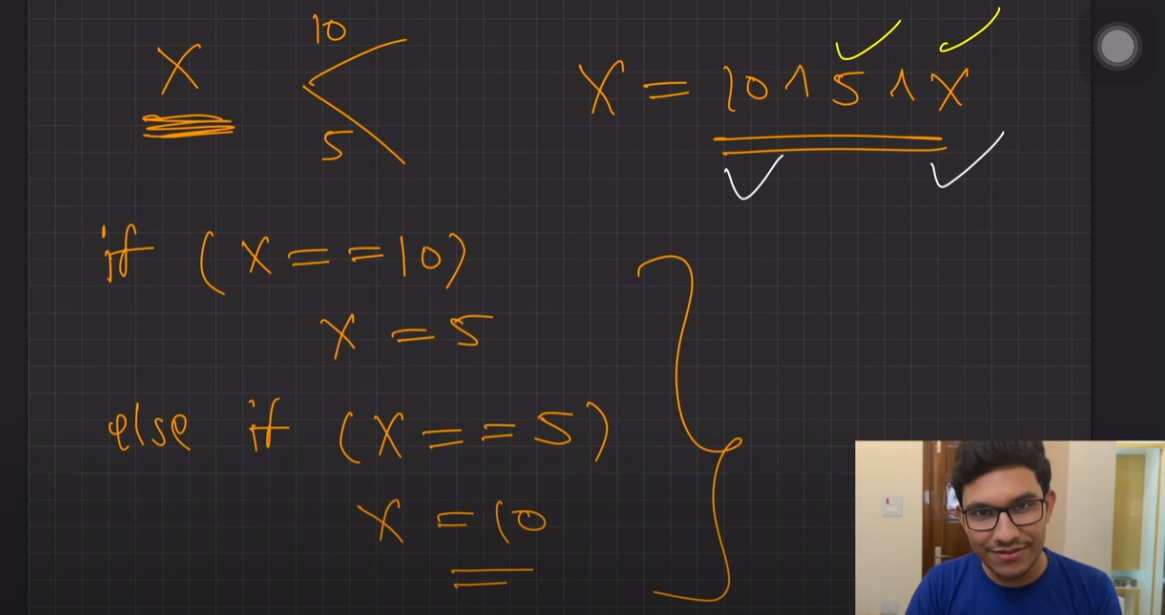 X < 10 5
X = 10 ^ 5 ^ X
if (X == 10)
X = 5
else if (X == 5)
X = 10